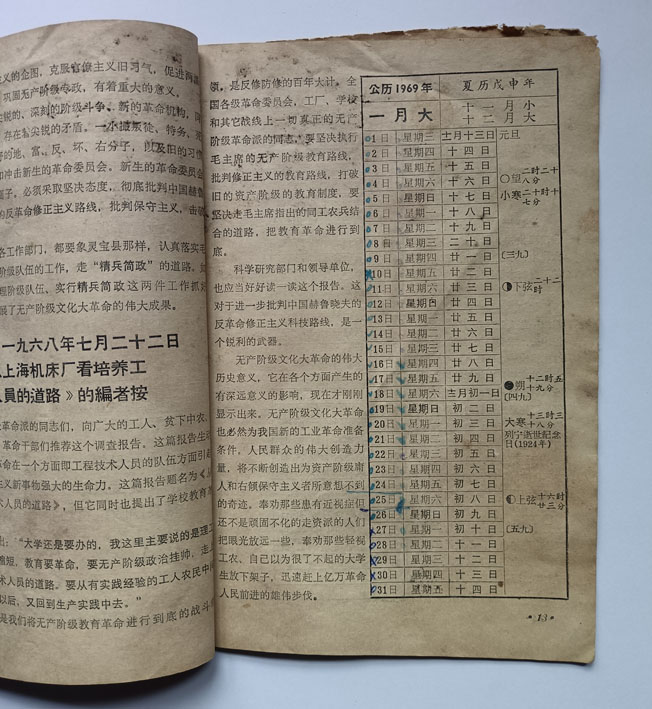 义的企图，克服官僚主义旧习气，促进
巩固无产阶级专政，有着重大的意义。
锐的、深刻的阶级斗争。新的革命机构，
存在着尖锐的矛盾。一小撮叛徒、特务、
的地、富、反、坏、右分子，以及旧的习惯
和冲击新生的革命委员会。新生的革命委员会
必须采取坚决态度，彻底批判中国赫鲁
的反革命修正主义路线，批判保守主义，
各工作部门，都要象灵宝县那样，认真落实毛
阶级队伍的工作，走“精兵简政”的道路，
阶级队伍，实行精兵简政这两件工作抓
展了无产阶级文化大革命的伟大成果。
一九六八年七月二十二日
上海机床厂看培养工
人员的道路》的编者按
革命派的同志们，向广大的工人、贫下中农、
革命干部们推荐这个调查报告。这篇报告生动
革命在一个方面即工程技术人员的队伍方面引起
义新事物强大的生命力。这篇报告题名为《
术人员的道路》，但它同时也提出了学校教育
出：“大学还是要办的，我这里主要说的是理工
缩短，教育要革命，要无产阶级政治挂帅，走
术人员的道路。要从有实践经验的工人农民中
以后，又回到生产实践中去。”
是我们将无产阶级教育革命进行到底的战斗
领，是反修防修的百年大计。全
国各级革命委员会，工厂、学校
和其它战线上一切真正的无产
阶级革命派的同志，要坚决执行
毛主席的无产阶级教育路线，
批判修正主义的教育路线，打破
旧的资产阶级的教育制度，要
坚决走毛主席指出的同工农兵结
合的道路，把教育革命进行到
底。
科学研究部门和领导单位，
也应当好好读一读这个报告。这
对于进一步批判中国赫鲁晓夫的
反革命修正主义科技路线，是一
个锐利的武器。
无产阶级文化大革命的伟大
历史意义，它在各个方面产生的
有深远意义的影响，现在才刚刚
显示出来。无产阶级文化大革命
也必然为我国新的工业革命准备
条件，人民群众的伟大创造力
量，将不断创造出为资产阶级庸
人和右倾保守主义者所意想不到
的奇迹。奉劝那些患有近视症但
还不是顽固不化的走资派的人们
把眼光放远一些，奉劝那些轻视
工农、自己以为很了不起的大学
生放下架子，迅速赶上亿万革命
人民前进的雄伟步伐。
公历1969年 夏历戊申年
一月大 十一月小
十二月大
1日 星期三 十一月十三日 元旦
2日 星期四 十四日
3日 星期五 十五日
4日 星期六 十六日 ○望二时二十八分
5日 星期日 十七日 小寒二十时十七分
6日 星期一 十八日
7日 星期二 十九日
8日 星期三 二十日
9日 星期四 廿一日 〔三九〕
10日 星期五 廿二日
11日 星期六 廿三日 下弦二十二时
12日 星期日 廿四日
13日 星期一 廿五日
14日 星期二 廿六日
15日 星期三 廿七日
16日 星期四 廿八日
17日 星期五 廿九日
18日 星期六 十二月初一日 ●朔十二时五十九分〔四九〕
19日 星期日 初二日
20日 星期一 初三日 大寒十三时三十八分
21日 星期二 初四日 列宁逝世纪念日(1924年)
22日 星期三 初五日
23日 星期四 初六日
24日 星期五 初七日
25日 星期六 初八日 上弦十六时廿三分
26日 星期日 初九日
27日 星期一 初十日 〔五九〕
28日 星期二 十一日
29日 星期三 十二日
30日 星期四 十三日
31日 星期五 十四日
·13·